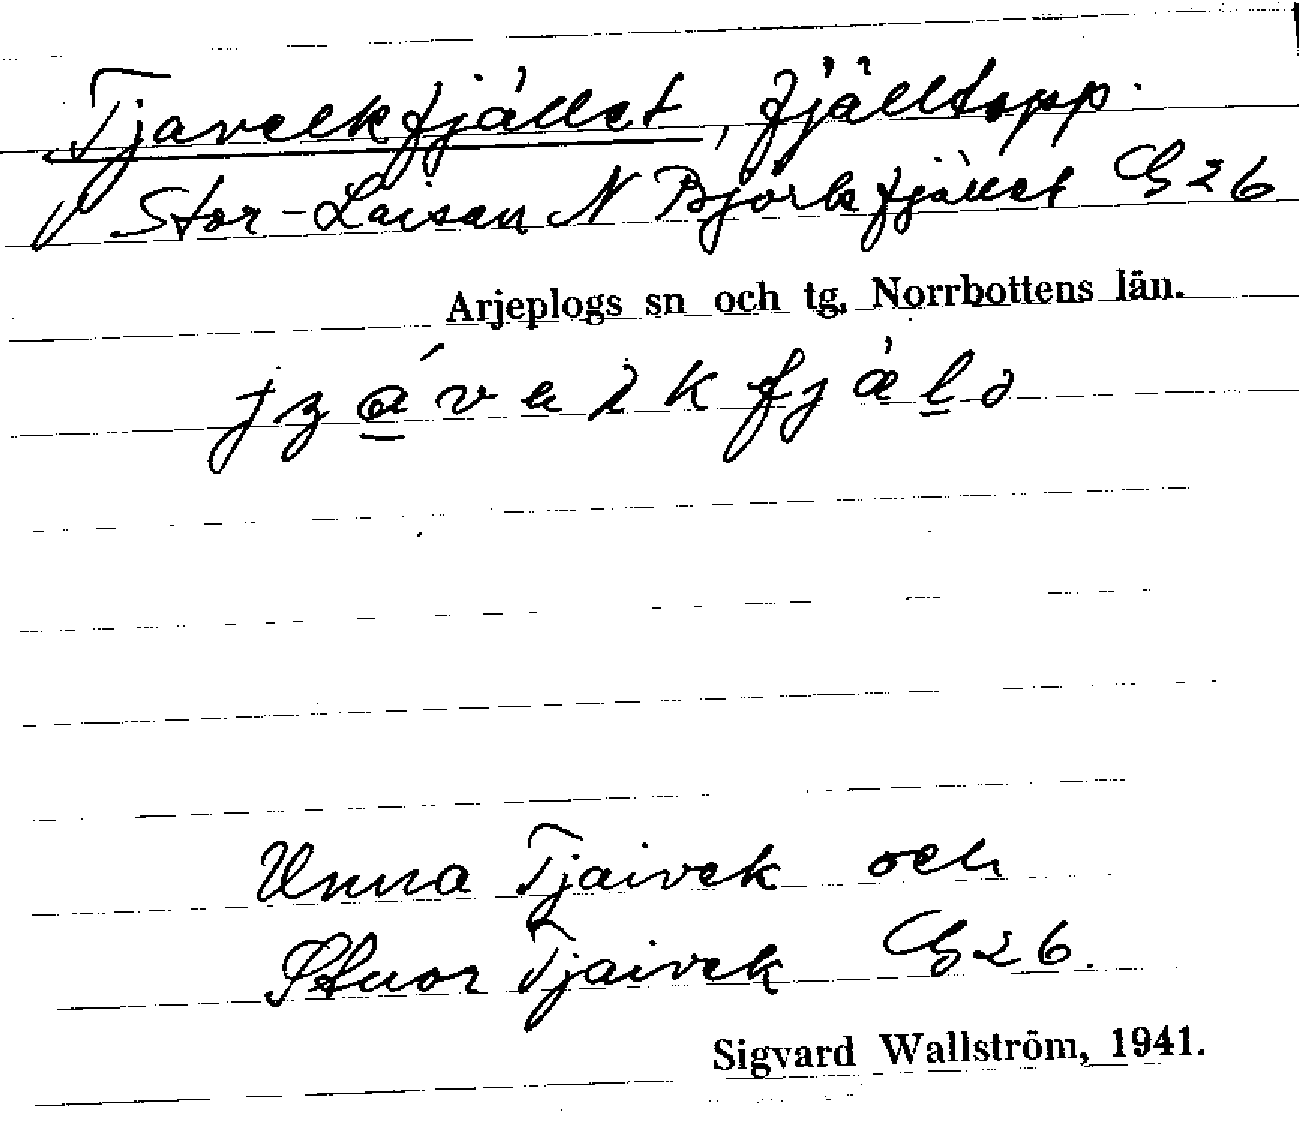 Tjavelkfjället, fjälltopp.
V Stor-Laisan N Björkfjället G 26
Arjeplogs sn och tg, Norrbottens län.
Unna Tjaivek och
Stuor Tjaivek G 26.
Sigvard Wallström, 1941.